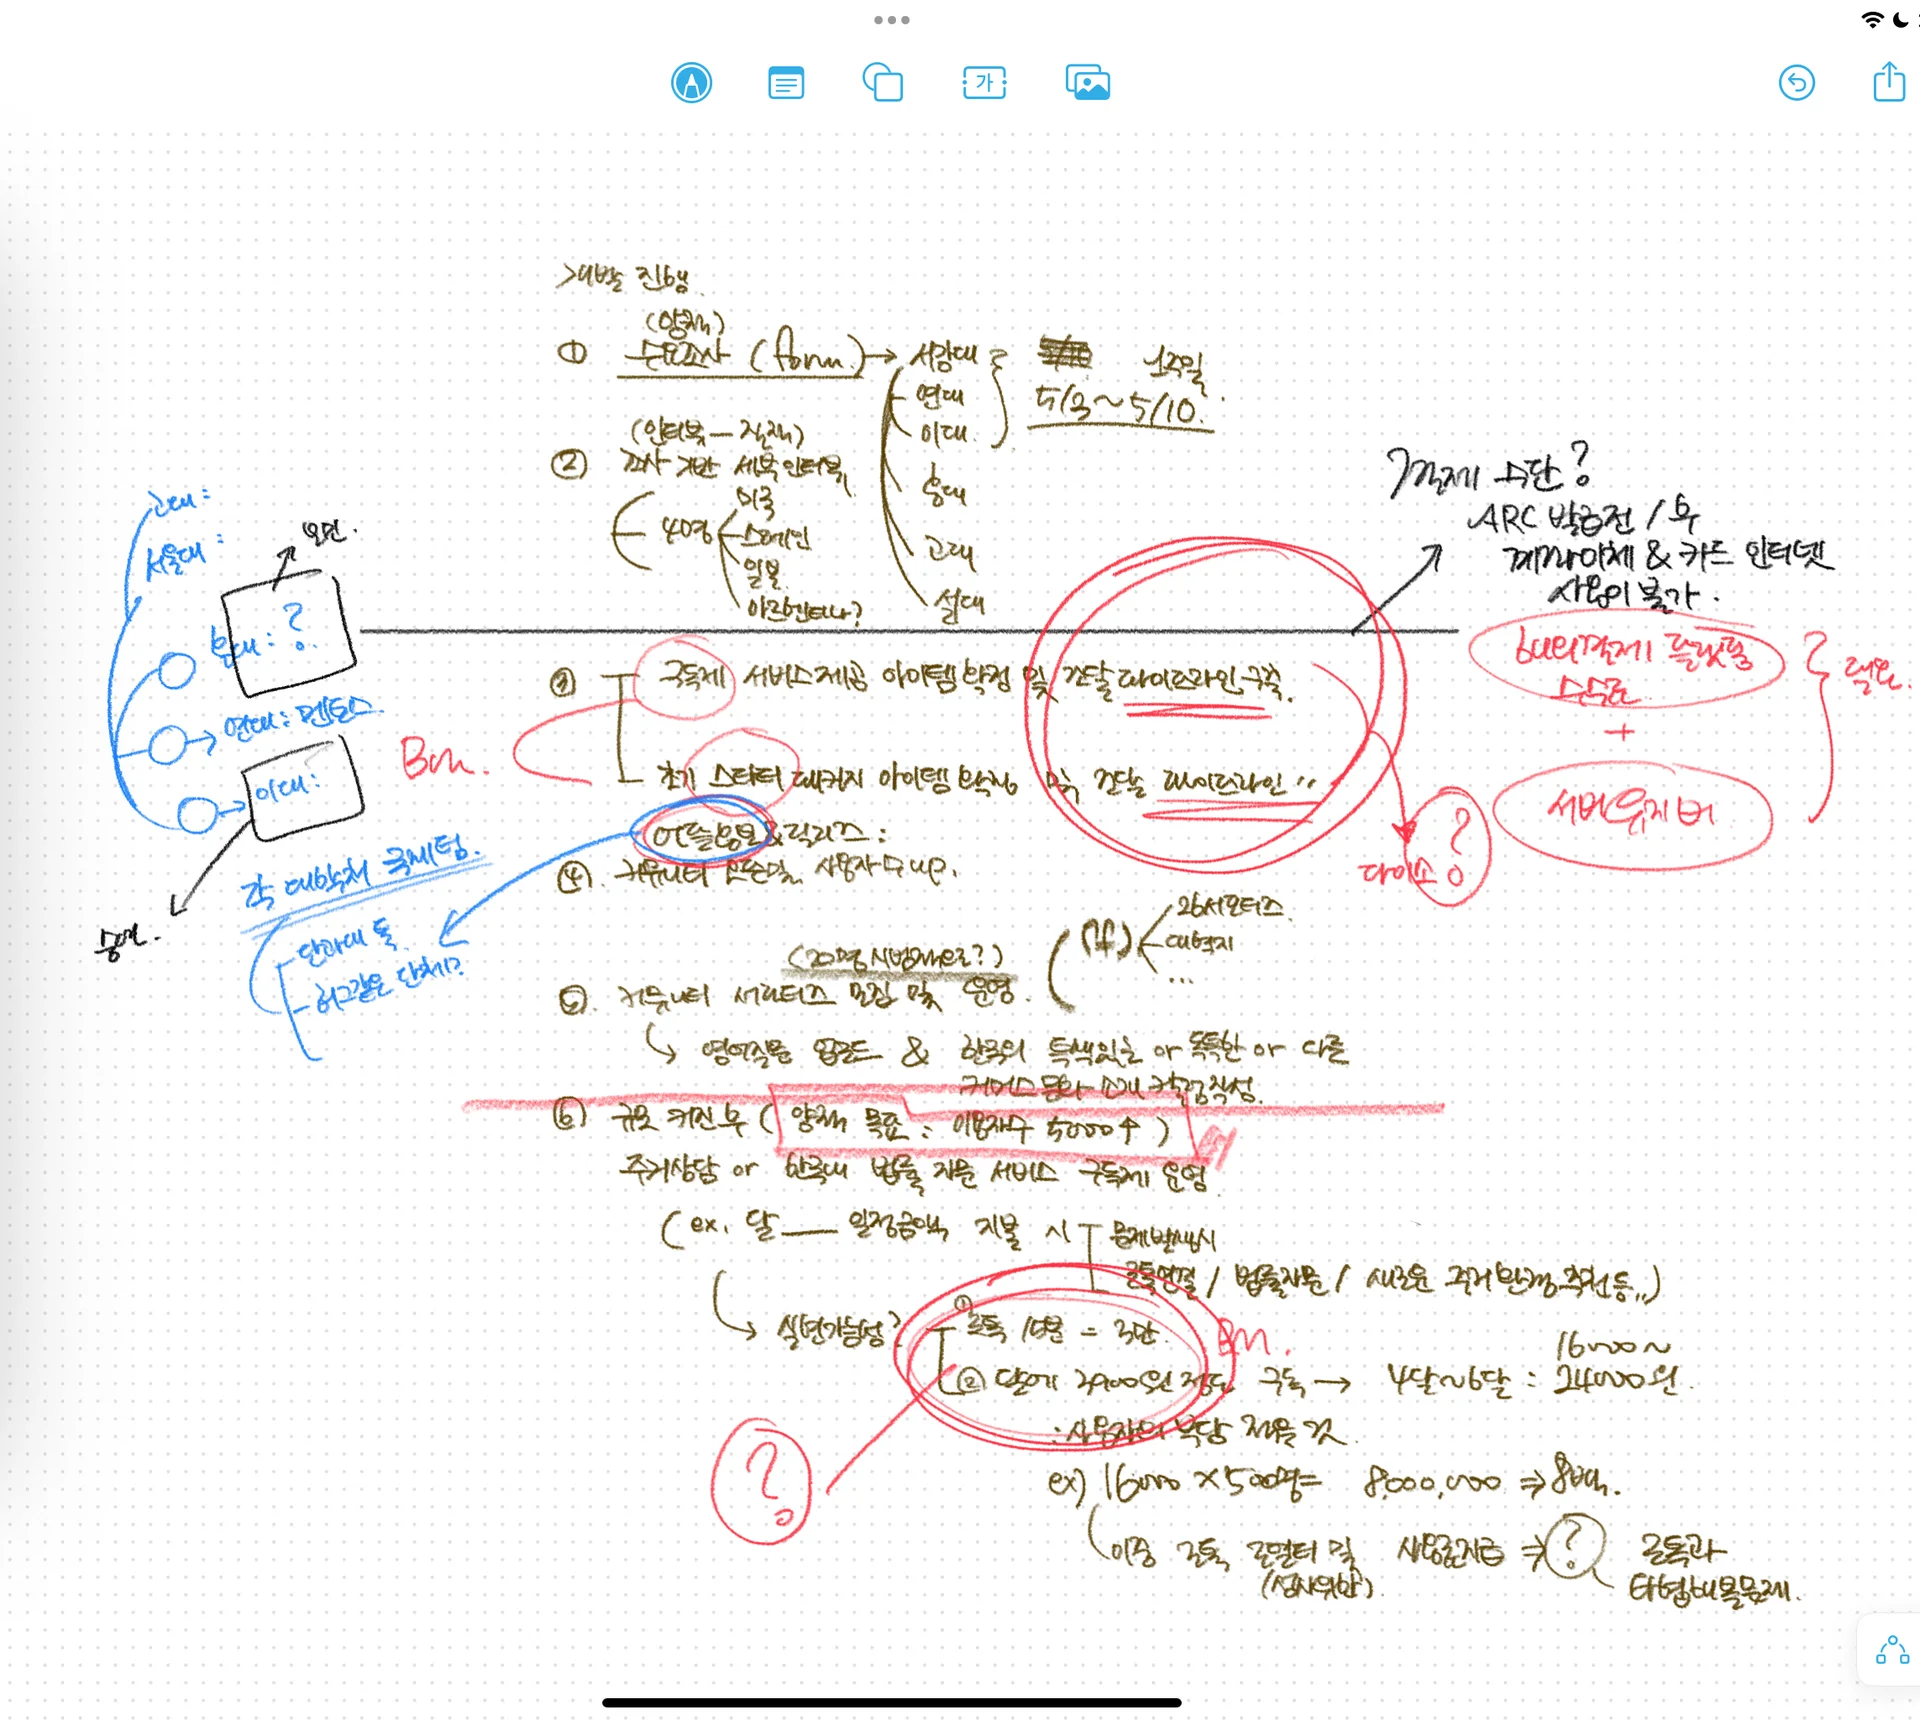 개발 진행
(양적)
① 수요조사 (form) → 서강대
연대
이대
홍대
고대
설대
1주일
5/3~5/10.
(인터뷰 — 질적)
② 조사 기반 세부인터뷰
40명
미국
스페인
일본
아르헨티나?
결제 수단?
ARC 발급전 / 후
계좌이체 & 카드 인터넷
사용이 불가.
고대:
서울대:
홍대: ?
연대: 멘토스
이대:
각 대학처 국제팀.
단과대 톡
허그같은 단체?
③ 구독제 서비스제공 아이템 확정 및 전달 파이프라인 구축.
초기 스타터 패키지 아이템 확정 및 전달 파이프라인 ''
Bm.
해외결제 플랫폼
수수료
+
서버유지비
필요.
다이소?
어플등록&릴리즈:
④. 커뮤니티 오픈 및 사용자 수 up.
(If)
26서포터즈
대학지
...
(20명 시범적으로?)
⑤. 커뮤니티 서포터즈 모집 및 운영.
영어질문 업로드 & 한국의 특색있는 or 독특한 or 다른
캠퍼스 문화 소개 칼럼작성.
⑥ 규모 커진 후 ( 양적 목표 : 이용자수 5000↑ )
주거상담 or 한국내 법률 자문 서비스 구독제 운영
(ex. 달 __ 일정금액 지불 시
문제발생시
로톡연결 / 법률자문 / 새로운 주거환경추천등..)
실현가능성?
① 로톡 15분 = 3만
② 달에 3900원 정도 구독 → 4달~6달 : 16000~
24000원.
Bm.
: 사용자의 부담 적을 것
?
ex) 16000 × 500명 = 8,000,000 ⇒ 8백.
이중 로톡 로열티 및 사용료지급 ⇒ ? 로톡과
타협해볼문제.